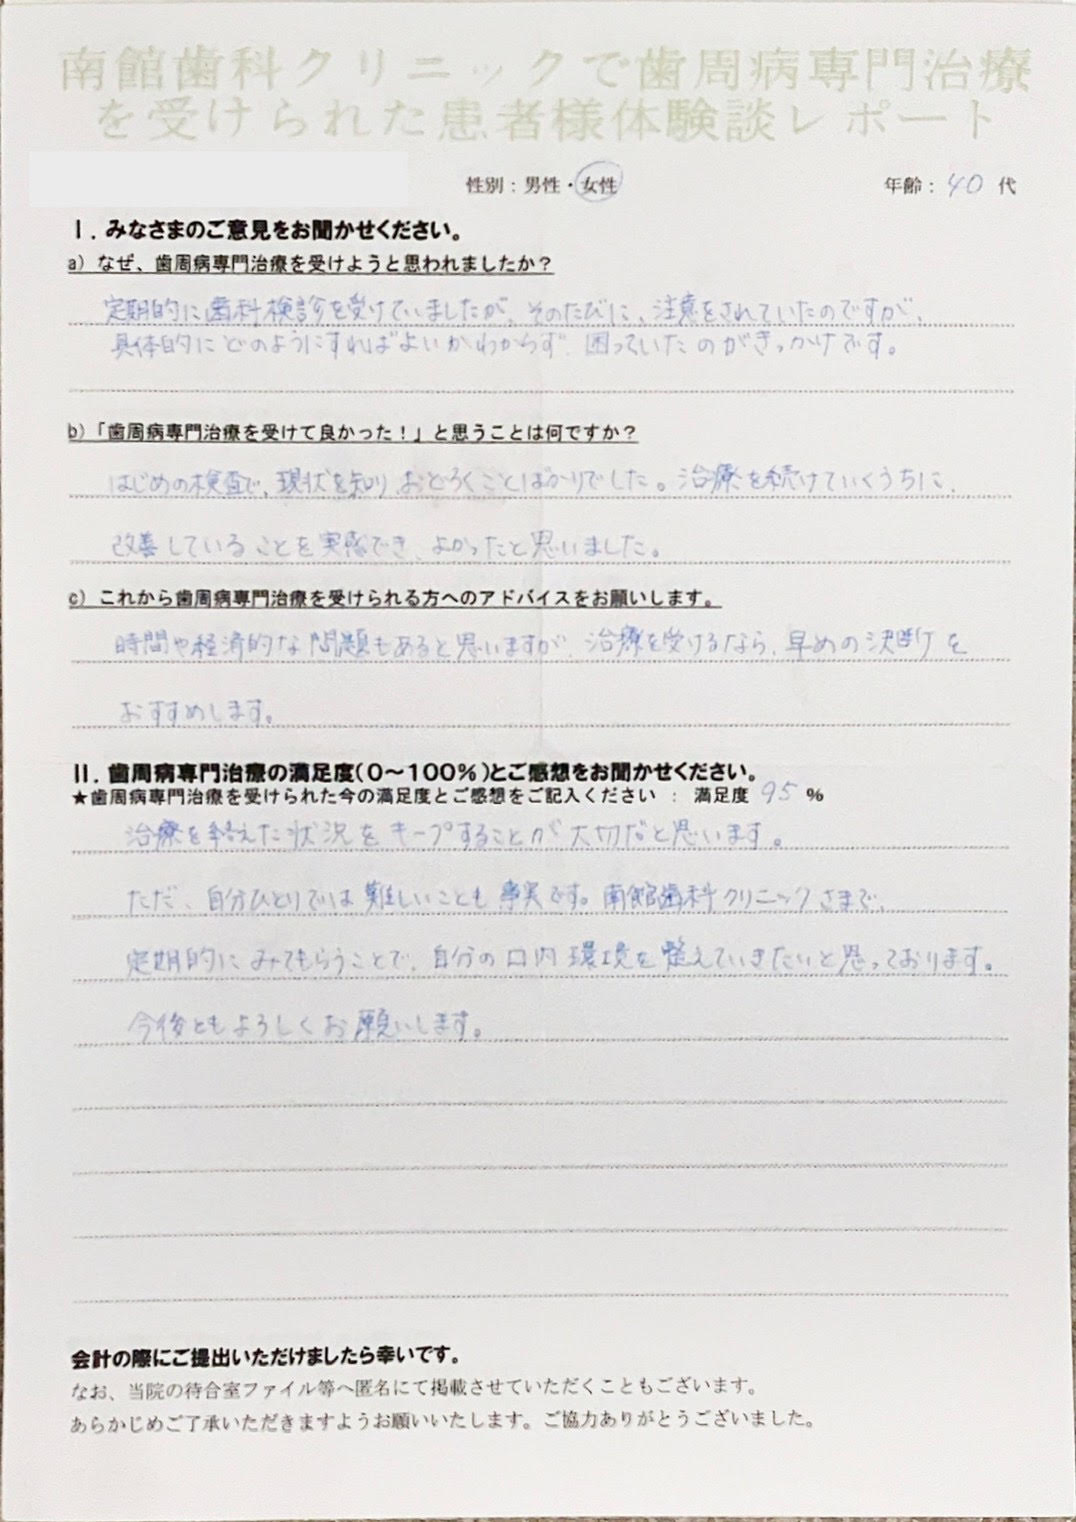 南館歯科クリニックで歯周病専門治療
を受けられた患者様体験談レポート
性別：男性・女性　年齢：40 代
Ⅰ．みなさまのご意見をお聞かせください。
a）なぜ、歯周病専門治療を受けようと思われましたか？
定期的に歯科検診を受けていましたが、そのたびに、注意をされていたのですが、
具体的にどのようにすればよいかわからず、困っていたのがきっかけです。
b）「歯周病専門治療を受けて良かった！」と思うことは何ですか？
はじめの検査で、現状を知り、おどろくことばかりでした。治療を続けていくうちに、
改善していることを実感でき、よかったと思いました。
c）これから歯周病専門治療を受けられる方へのアドバイスをお願いします。
時間や経済的な問題もあると思いますが、治療を受けるなら、早めの決断を
おすすめします。
Ⅱ．歯周病専門治療の満足度（0～100％）とご感想をお聞かせください。
★歯周病専門治療を受けられた今の満足度とご感想をご記入ください ： 満足度 95 ％
治療を終えた状況をキープすることが大切だと思います。
ただ、自分ひとりでは難しいことも事実です。南館歯科クリニックさまで、
定期的にみてもらうことで、自分の口内環境を整えていきたいと思っております。
今後ともよろしくお願いします。
会計の際にご提出いただけましたら幸いです。
なお、当院の待合室ファイル等へ匿名にて掲載させていただくこともございます。
あらかじめご了承いただきますようお願いいたします。ご協力ありがとうございました。